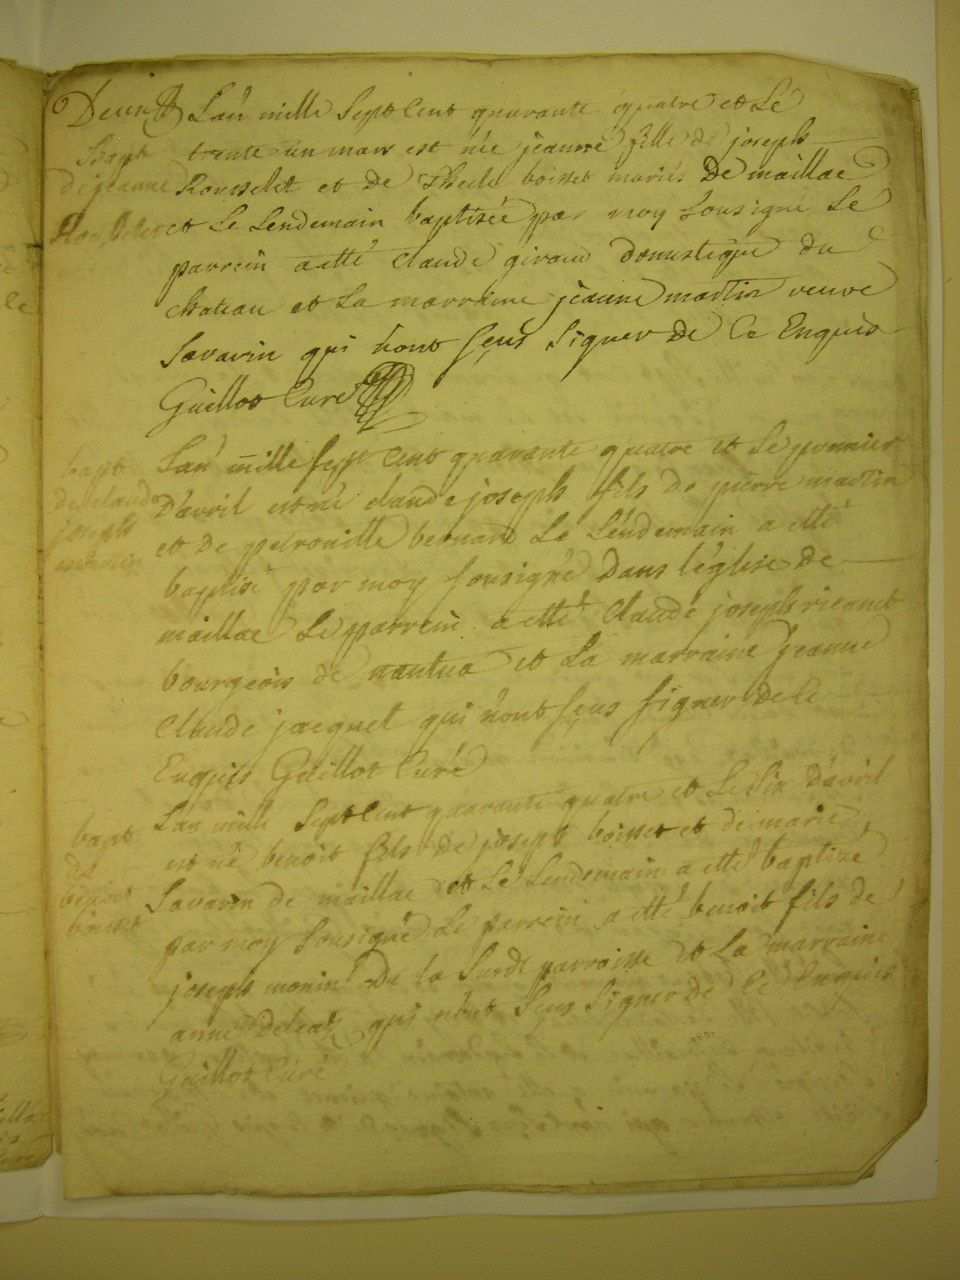 Deux L'an mille Sept Cent quarante quatre et Le
Bapt trente un mars est née jeanne fille de joseph
de jeanne Rousselet et de boisset mariés De maillac
Rousselet et Le Lendemain baptisée par moy Sousigné Le
parrein a etté claude giraud domestique du
chateau et La marraine jeanne martin veuve
Savarin qui n'ont sçeus Signer de Ce Enquis
Guillot Curé
bapt L'an mille sept Cent quarante quatre et Le premier
de claude D'avril est né claude joseph fils de pierre martin
joseph et De petronille bernard Le Lendemain a etté
martin baptisé par moy sousigné Dans l'église de
maillac Le parrein a etté Claude joseph
bourgeois de nantua et La marraine jeanne
Claude jacquet qui n'ont sçeus signer de Ce
Enquis Guillot Curé
L'an mille Sept Cent quarante quatre et Le Six D'avril
bapt est né benoit fils De joseph boisset et de marie
de Savarin de maillac et Le Lendemain a etté baptizé
benoit par moy Sousigné Le parrein a etté benoit fils de
boisset joseph monin De la parroisse et La marraine
anne qui n'ont sçeus Signer de Ce Enquis
Guillot Curé